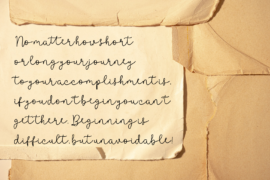 No matter how short
or long your journey
to your accomplishment is.
if you don't begin you can't
get there. Beginning is
difficult. but unavoidable!